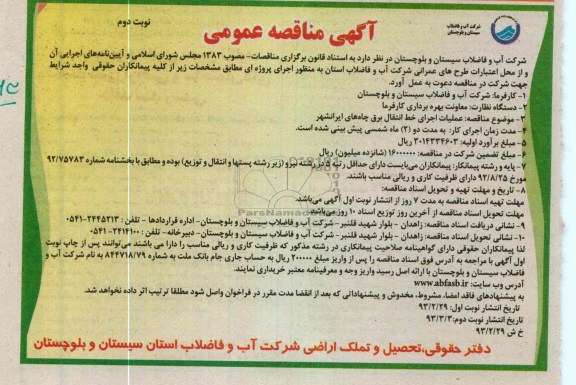 نوبت دوم
آگهی مناقصه عمومی
شرکت آب و فاضلاب
سیستان و بلوچستان
شرکت آب و فاضلاب سیستان و بلوچستان در نظر دارد به استناد قانون برگزاری مناقصات- مصوب ۱۳۸۳ مجلس شورای اسلامی و آیین‌نامه‌های اجرایی آن
و از محل اعتبارات طرح های عمرانی شرکت آب و فاضلاب استان به منظور اجرای پروژه ای مطابق مشخصات زیر از کلیه پیمانکاران حقوقی واجد شرایط
جهت شرکت در مناقصه دعوت به عمل آورد.
۱- کارفرما: شرکت آب و فاضلاب سیستان و بلوچستان
۲- دستگاه نظارت: معاونت بهره برداری کارفرما
۳- موضوع مناقصه: عملیات اجرای خط انتقال برق چاه‌های ایرانشهر
۴- مدت زمان اجرای کار: به مدت دو (۲) ماه شمسی پیش بینی شده است.
۵- مبلغ برآورد اولیه: ۳۰۱۴۳۳۴۶۰۳ ریال
۶- مبلغ تضمین شرکت در مناقصه: ۱۶۰۰۰۰۰۰ (شانزده میلیون) ریال
۷- پایه و رشته پیمانکار: پیمانکاران می‌بایست دارای حداقل رتبه ۵ در رشته نیرو (زیر رشته پستها و انتقال و توزیع) بوده و مطابق با بخشنامه شماره ۹۲/۷۵۷۸۳
مورخ ۹۲/۸/۲۵ دارای ظرفیت کاری و ریالی مناسب باشند.
۸- تاریخ و مهلت تهیه و تحویل اسناد مناقصه:
مهلت تهیه اسناد مناقصه به مدت ۷ روز از انتشار نوبت اول آگهی می‌باشد.
مهلت تحویل اسناد مناقصه از آخرین روز توزیع اسناد ۱۰ روز می‌باشد.
۹- نشانی دریافت اسناد مناقصه: زاهدان - بلوار شهید قلنبر - شرکت آب و فاضلاب سیستان و بلوچستان - اداره قراردادها - تلفن : ۲۴۴۵۲۱۳-۰۵۴۱
۱۰- نشانی تحویل اسناد مناقصه: زاهدان - بلوار شهید قلنبر - شرکت آب و فاضلاب سیستان و بلوچستان- دبیرخانه - تلفن : ۲۴۱۴۱۰۰-۰۵۴۱
لذا پیمانکاران حقوقی دارای گواهینامه صلاحیت پیمانکاری در رشته مذکور که ظرفیت کاری و ریالی مناسب را دارا می باشند می‌توانند پس از چاپ نوبت
اول آگهی با مراجعه به آدرس فوق اسناد مناقصه را پس از واریز مبلغ ۲۰۰۰۰۰ ریال به حساب جاری جام بانک ملت به شماره ۸۴۴۷۱۸/۷۹ به نام شرکت آب و
فاضلاب سیستان و بلوچستان با ارائه اصل رسید واریز وجه و معرفینامه معتبر خریداری نمایند.
آدرس وب سایت: www.abfasb.ir
به پیشنهادهای فاقد امضا، مشروط، مخدوش و پیشنهاداتی که بعد از انقضا مدت مقرر در فراخوان واصل شود مطلقا ترتیب اثر داده نخواهد شد.
تاریخ انتشار نوبت اول: ۹۳/۲/۲۹
تاریخ انتشار نوبت دوم: ۹۳/۳/۳
خ ش ۹۳/۲/۲۹
دفتر حقوقی،تحصیل و تملک اراضی شرکت آب و فاضلاب استان سیستان و بلوچستان